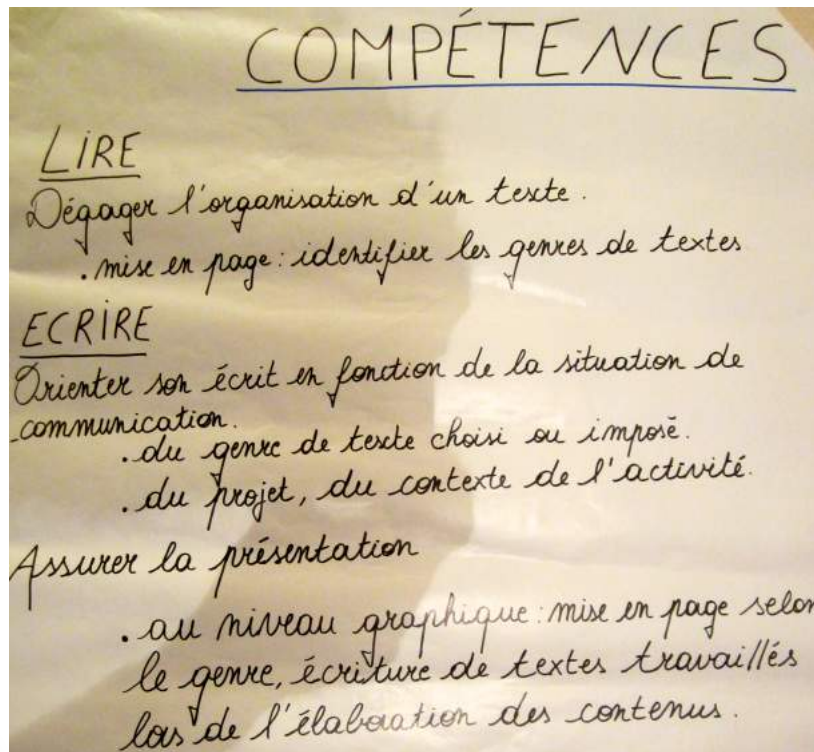 COMPÉTENCES
LIRE
Dégager l'organisation d'un texte.
. mise en page : identifier les genres de textes
ECRIRE
Orienter son écrit en fonction de la situation de
communication.
. du genre de texte choisi ou imposé.
. du projet, du contexte de l'activité.
Assurer la présentation
. au niveau graphique : mise en page selon
le genre, écriture de textes travaillés
lors de l'élaboration des contenus.